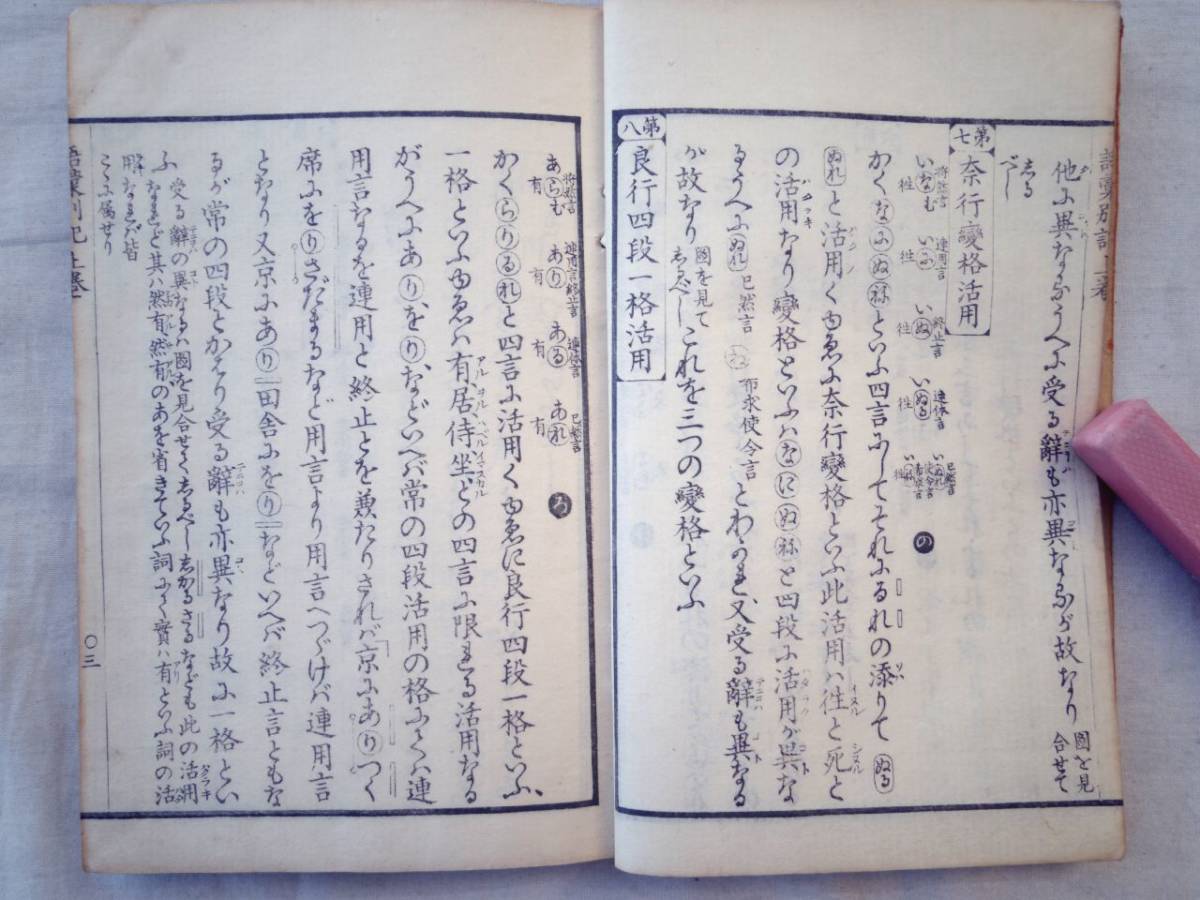 他に異なるうへに受る辭も亦異なるが故なり 圖を見合せて
しるべし
第七 奈行變格活用
将然言 いなむ 徃
連用言 いに 徃
終止言 いぬ 徃
連体言 いぬる 徃
已然言 いぬれ
使令言 希求言 いね 徃
かくなにぬねといふ四言にしてそれにるれの添りてぬる
ぬれと活用くゆゑに奈行變格といふ此活用ハ徃と死と
の活用なり變格といふハなにぬねと四段に活用が異な
るうへにぬれ 已然言 ね 希求使令言 とわかれ又受る辭も異なる
が故なり 圖を見てしるべし これを三つの變格といふ
第八 良行四段一格活用
将然言 あらむ 有
連用言終止言 あり 有
連体言 ある 有
已然言 あれ 有
かくらりるれと四言に活用くゆゑに良行四段一格といふ
一格といふゆゑハ有、居、侍、坐どの四言に限れる活用なる
がうへにあり、をり、などいへバ常の四段活用の格にてハ連
用言なるを連用と終止とを兼たりされバ京にありつく
席にをりさだまるなど用言より用言へつゞけバ連用言
となり又京にあり田舎にをりなどいへバ終止言ともな
るが常の四段とかはり受る辭も亦異なり故に一格とい
ふ 受る辭の異なるハ圖を見合せてしるべししかるさるなども此の活用
なれど其ハ然有、然有のあを省きていふ詞にて實ハ有といふ詞の活
用なれバ皆
こゝに属せり
〇三